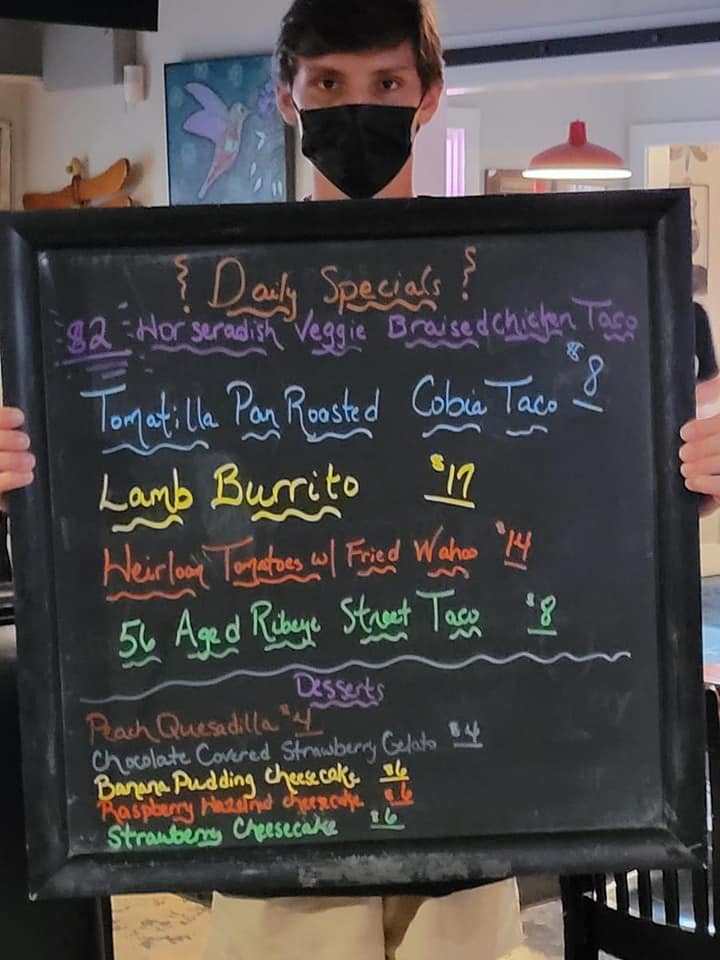 { Daily Specials }
$2 - Horseradish Veggie Braised chicken Taco
Tomatilla Pan Roasted Cobia Taco $8
Lamb Burrito $17
Heirloom Tomatoes w/ Fried Wahoo $14
56 Aged Ribeye Street Taco $8
Desserts
Peach Quesadilla $4
Chocolate Covered Strawberry Gelato $4
Banana Pudding Cheesecake $6
Raspberry Hazelnut cheesecake $6
Strawberry Cheesecake $6